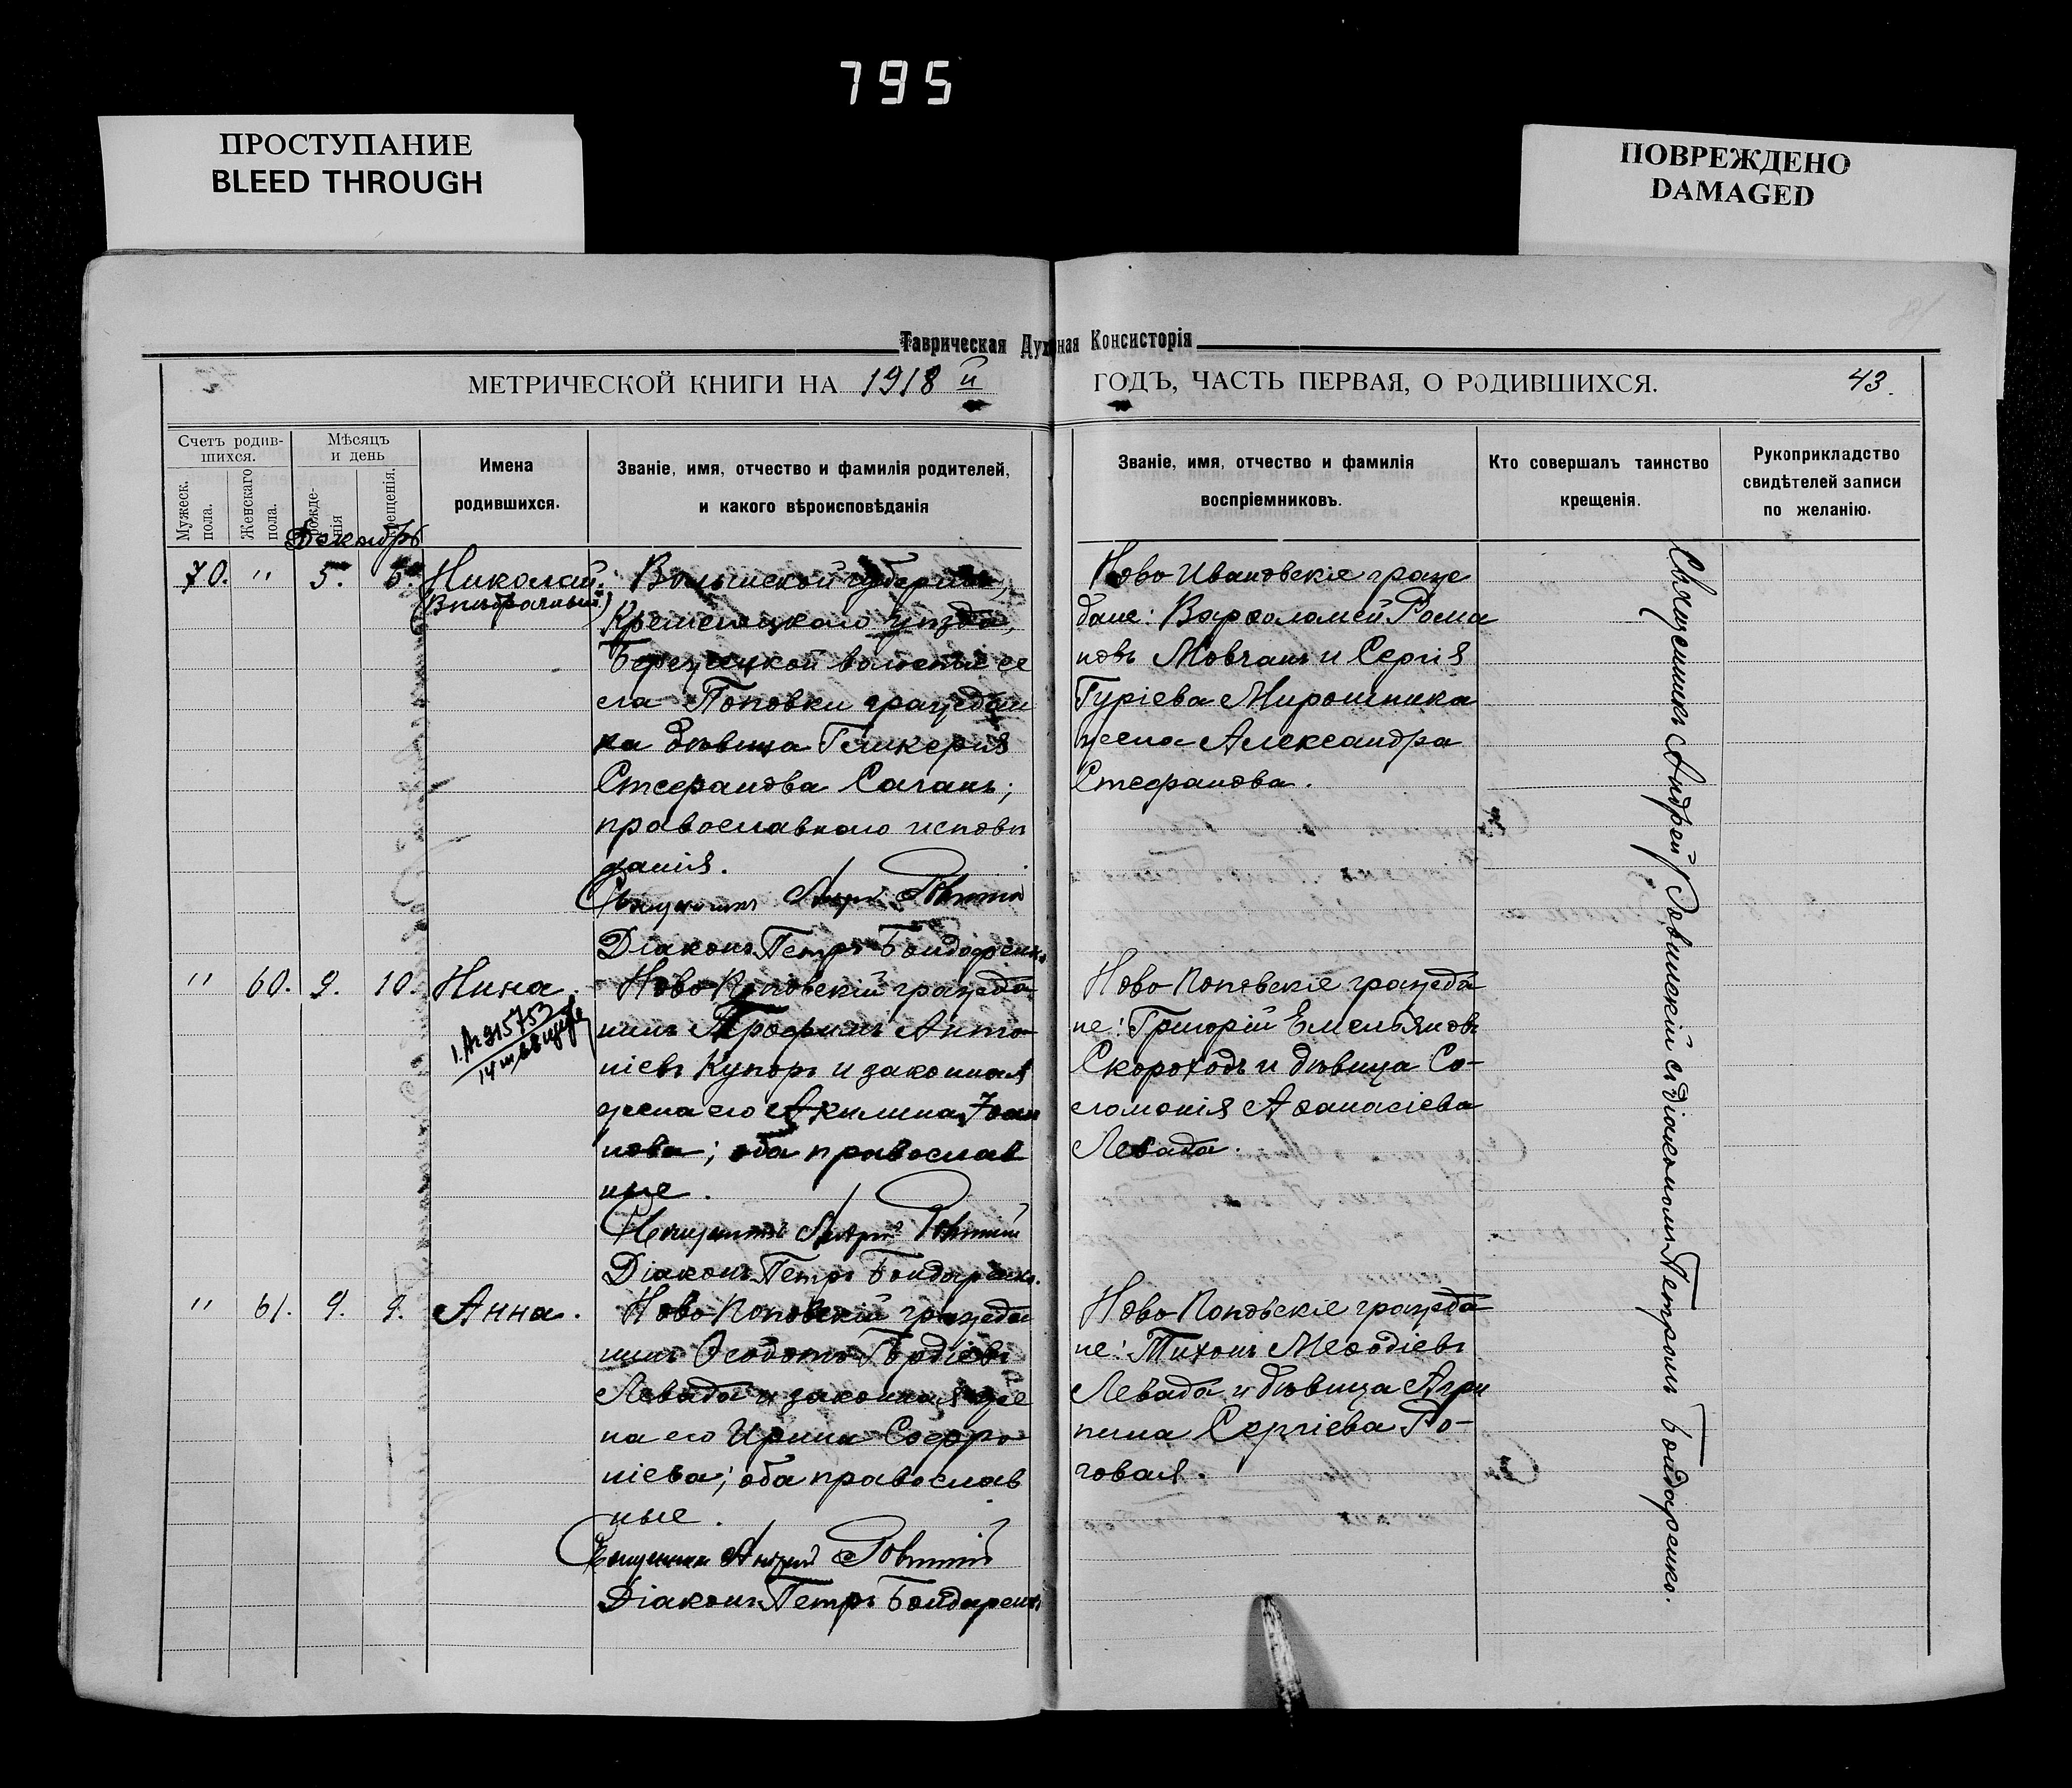 795
ПРОСТУПАНИЕ
BLEED THROUGH
ПОВРЕЖДЕНО
DAMAGED
Таврическая Духовная Консисторія
МЕТРИЧЕСКОЙ КНИГИ НА 1918 й
ГОДЪ, ЧАСТЬ ПЕРВАЯ, О РОДИВШИХСЯ.
43.
Счетъ родив-
шихся.
Мужеск.
пола.
Женскаго
пола.
Мѣсяцъ
и день
рожде-
нія
крещенія.
Имена
родившихся.
Званіе, имя, отчество и фамилія родителей,
и какого вѣроисповѣданія
Званіе, имя, отчество и фамилія
воспріемниковъ.
Кто совершалъ таинство
крещенія.
Рукоприкладство
свидѣтелей записи
по желанію.
Декабрь
70. " 5. 5. Николай.
(Внѣбрачный)
Волынской губерніи,
Кременецкаго уѣзда,
Берестецкой волости се
ла Поповки гражедан
ка дѣвица Гликерія
Стефанова Саганъ;
православнаго исповѣ
данія.
Священникъ Андрей
Діаконъ Петръ Бондаренко
Ново Ивановскіе граже
дане: Варѳоломей Рома
новъ Мовчанъ и Сергія
Гуріева Мирошника
жена Александра
Стефанова.
" 60. 9. 10. Нина.
Ново-Поповскій гражеда
нинъ Трофимъ Анто-
ніевъ Купоръ и законная
жена его Акилина Іоан
нова; оба православ
ные.
Священникъ Андрей
Діаконъ Петръ Бондаренко.
Ново-Поповскіе гражеда
не: Григорій Емельяновъ
Скороходъ и дѣвица Со-
ломонія Аѳанасіева
Левада.
" 61. 9. 9. Анна.
Ново-Поповскій гражеда
нинъ Ѳеодотъ Гордіевъ
Левада и законная же
на его Ирина Софро-
ніева; оба православ
ные.
Священникъ Андрей
Діаконъ Петръ Бондаренко
Ново-Поповскіе гражеда
не: Тихонъ Меѳодіевъ
Левада и дѣвица Агри
пина Сергіева Ро-
говая.
Священникъ Андрей Ровинскій съ діакономъ Петромъ Бондаренко.